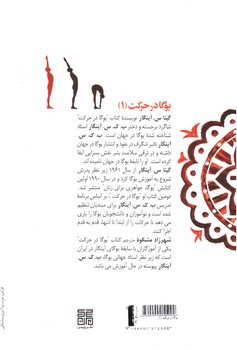 یوگا در حرکت (۱)
گیتا س. آینگار نویسندهٔ کتاب "یوگا در حرکت"
شاگرد برجسته و دختر ب. ک. س. آینگار استاد
شناخته شدهٔ یوگا در جهان است. ب. ک. س.
آینگار تاثیر شگرف در نفوذ و انتشار یوگا در جهان
داشته و در ترقی سلامت بشر نقش بسزایی ایفا
کرده است. او را نابغهٔ یوگا در جهان نامیده اند.
گیتا س. آینگار از سال ۱۹۶۱ زیر نظر پدرش
شروع به آموزش یوگا کرد و در سال ۱۹۹۰ اولین
کتابش "یوگا، جواهری برای زنان" منتشر شد.
دومین کتاب او "یوگا در حرکت"، بر اساس برنامهٔ
تدریس ب. ک. س. آینگار برای مبتدیان تنظیم
شده است و نوآموزان و دانشجویان یوگا را یاری
می دهد تا حرکات را از ابتدا تا انتها، قدم به قدم
اجرا کنند.
شهرزاد مشکوة مترجم کتاب "یوگا در حرکت"
یکی از آموزگاران با سابقهٔ یوگای آینگار در ایران
است که زیر نظر استاد جهانی یوگا، ب. ک. س.
آینگار پیوسته در حال آموزش می باشد.